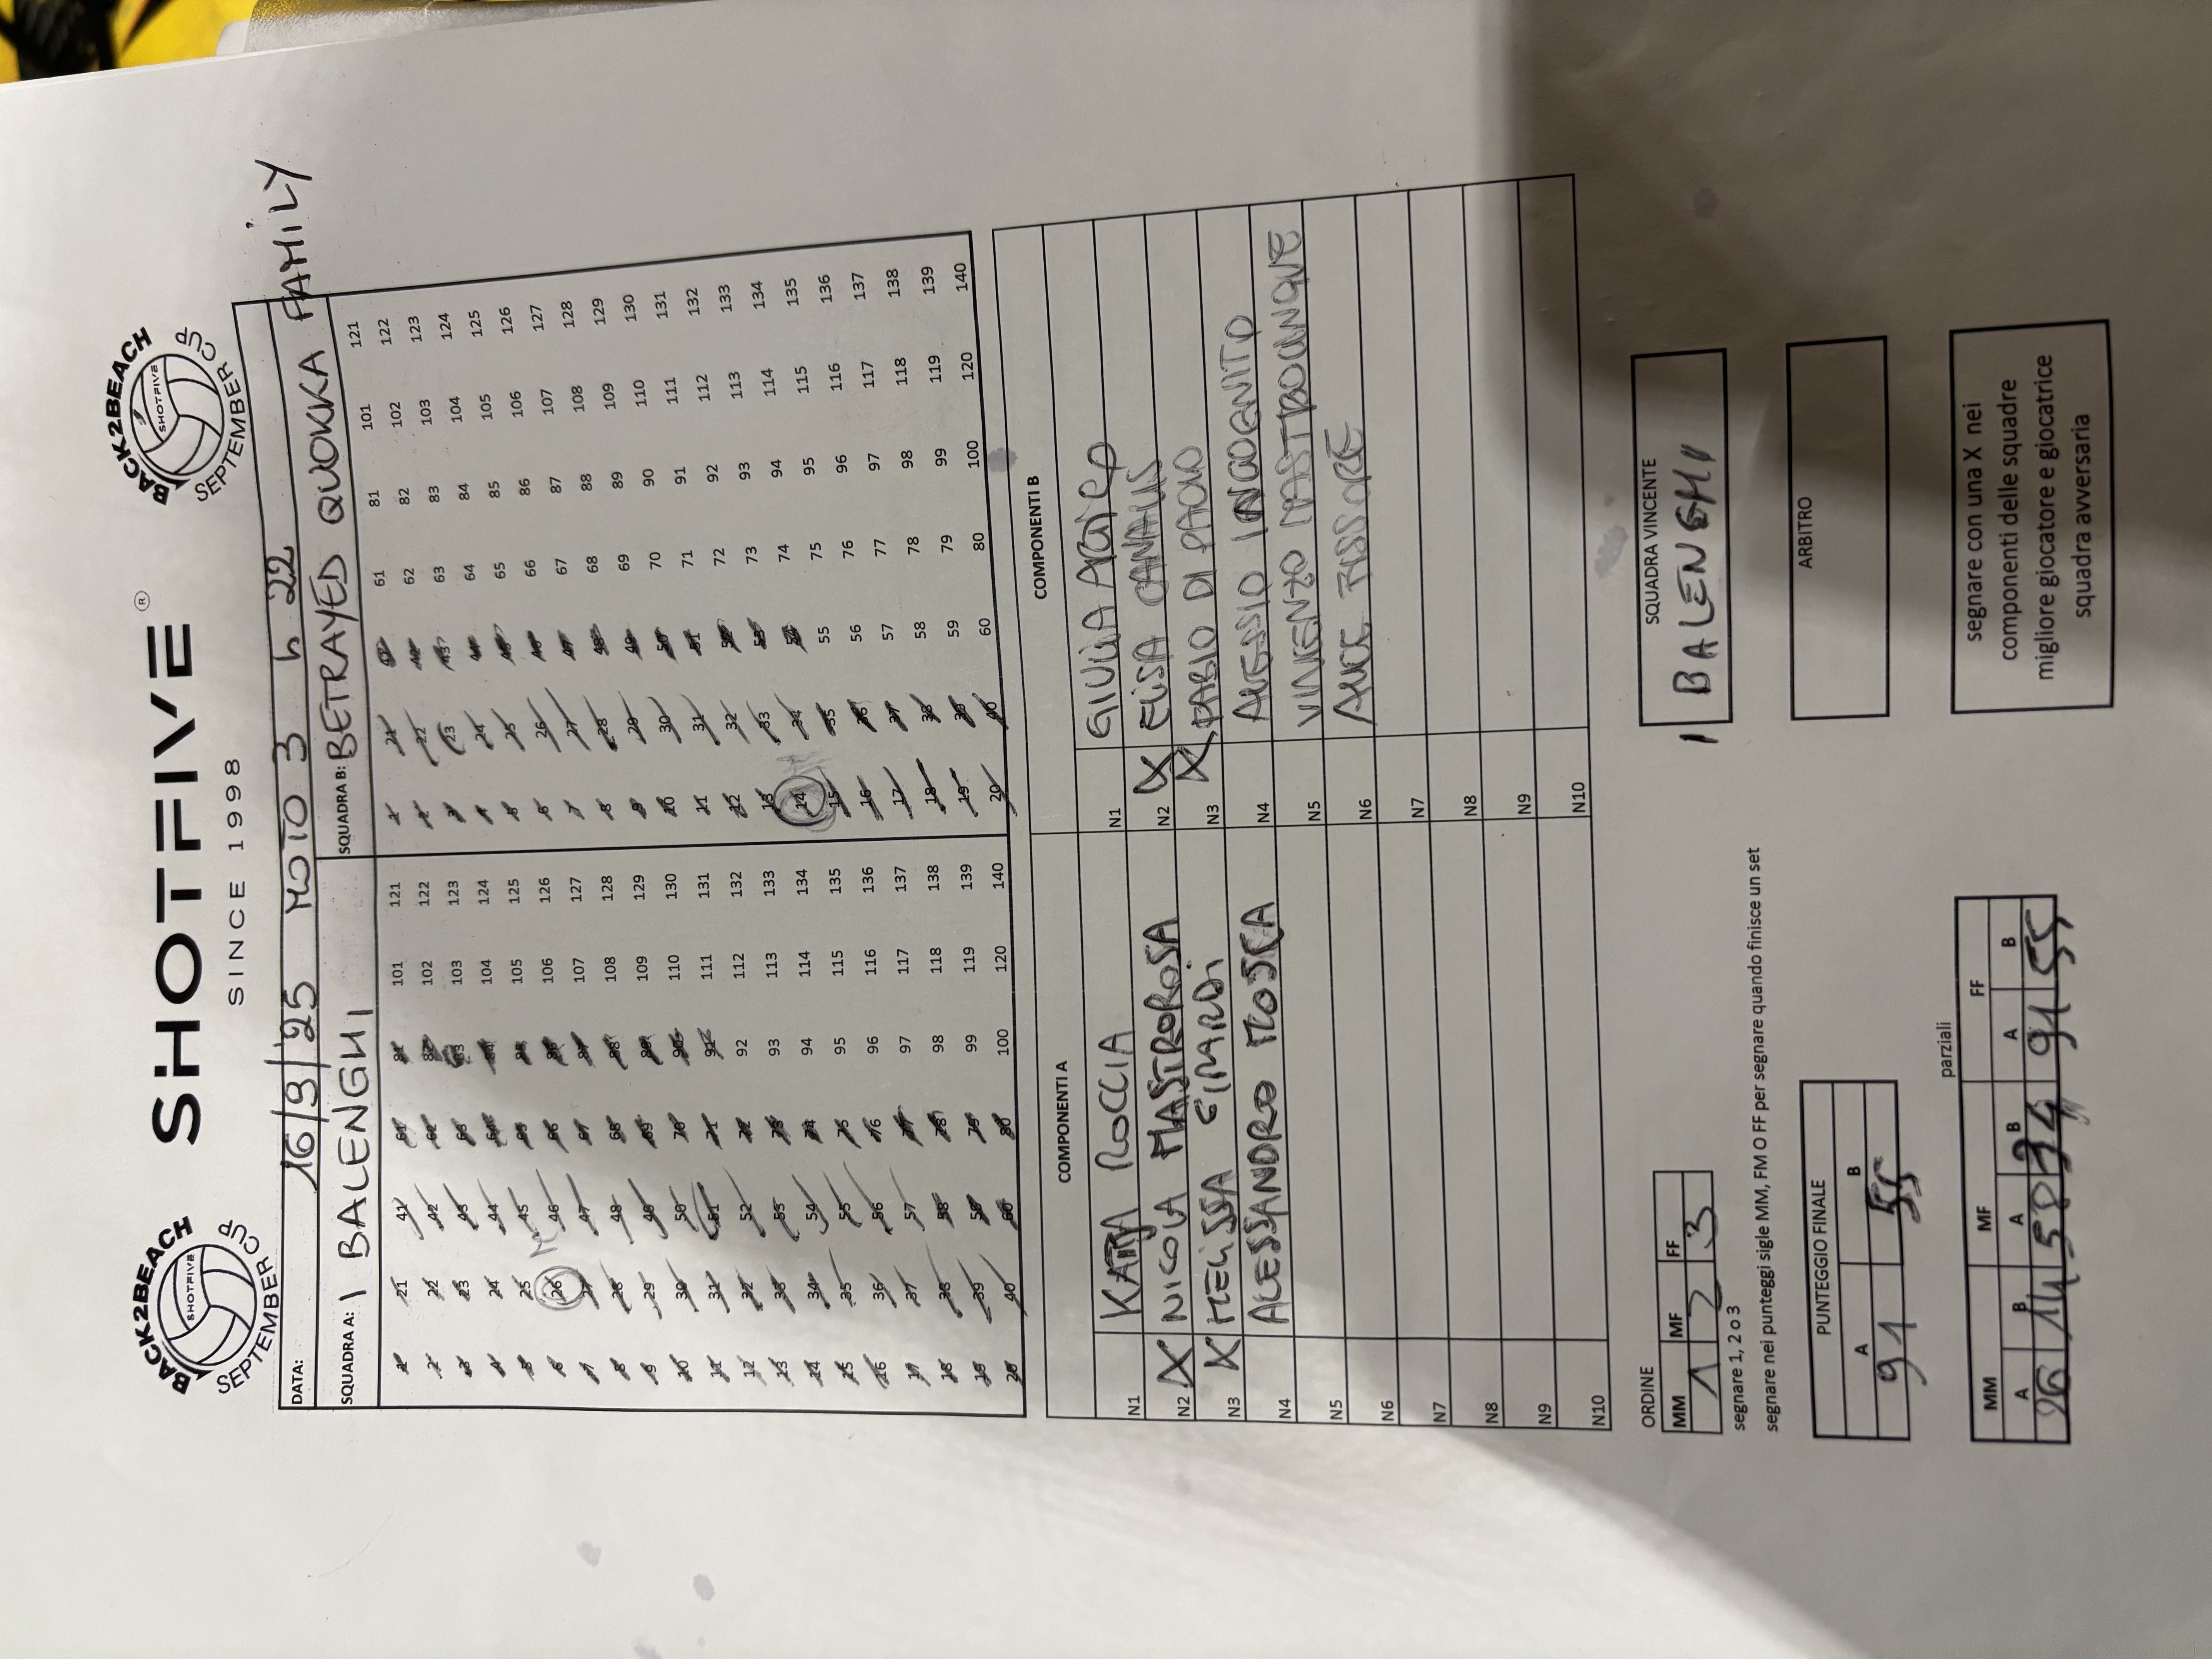 BACK2BEACH
SHOTFIVE
SEPTEMBER CUP
SHOTFIVE®
SINCE 1998
BACK2BEACH
SHOTFIVE
SEPTEMBER CUP
DATA: 16/9/25 MOTO 3 h 22
SQUADRA A: I BALENGHI SQUADRA B: BETRAYED QUOKKA FAMILY
1 21 41 61 81 101 121 1 21 41 61 81 101 121
2 22 42 62 82 102 122 2 22 42 62 82 102 122
3 23 43 63 83 103 123 3 23 43 63 83 103 123
4 24 44 64 84 104 124 4 24 44 64 84 104 124
5 25 45 65 85 105 125 5 25 45 65 85 105 125
6 26 46 66 86 106 126 6 26 46 66 86 106 126
7 27 47 67 87 107 127 7 27 47 67 87 107 127
8 28 48 68 88 108 128 8 28 48 68 88 108 128
9 29 49 69 89 109 129 9 29 49 69 89 109 129
10 30 50 70 90 110 130 10 30 50 70 90 110 130
11 31 51 71 91 111 131 11 31 51 71 91 111 131
12 32 52 72 92 112 132 12 32 52 72 92 112 132
13 33 53 73 93 113 133 13 33 53 73 93 113 133
14 34 54 74 94 114 134 14 34 54 74 94 114 134
15 35 55 75 95 115 135 15 35 55 75 95 115 135
16 36 56 76 96 116 136 16 36 56 76 96 116 136
17 37 57 77 97 117 137 17 37 57 77 97 117 137
18 38 58 78 98 118 138 18 38 58 78 98 118 138
19 39 59 79 99 119 139 19 39 59 79 99 119 139
20 40 60 80 100 120 140 20 40 60 80 100 120 140
COMPONENTI A COMPONENTI B
N1 KATIA ROCCIA N1 GIULIA
N2 X NICOLA MASTROROSA N2 X ELISA CANALIS
N3 X MELISSA N3 X FABIO DI PAOLO
N4 ALESSANDRO MOSCA N4 ALESSIO INCOGNITO
N5 N5 VINCENZO MASTROCINQUE
N6 N6 ALICE
N7 N7
N8 N8
N9 N9
N10 N10
ORDINE
MM MF FF
1 2 3
segnare 1, 2 o 3
segnare nei punteggi sigle MM, FM O FF per segnare quando finisce un set
SQUADRA VINCENTE
I BALENGHI
PUNTEGGIO FINALE
A B
91 55
ARBITRO
parziali
MM MF FF
A B A B A B
26 14 58 34 91 55
segnare con una X nei
componenti delle squadre
migliore giocatore e giocatrice
squadra avversaria